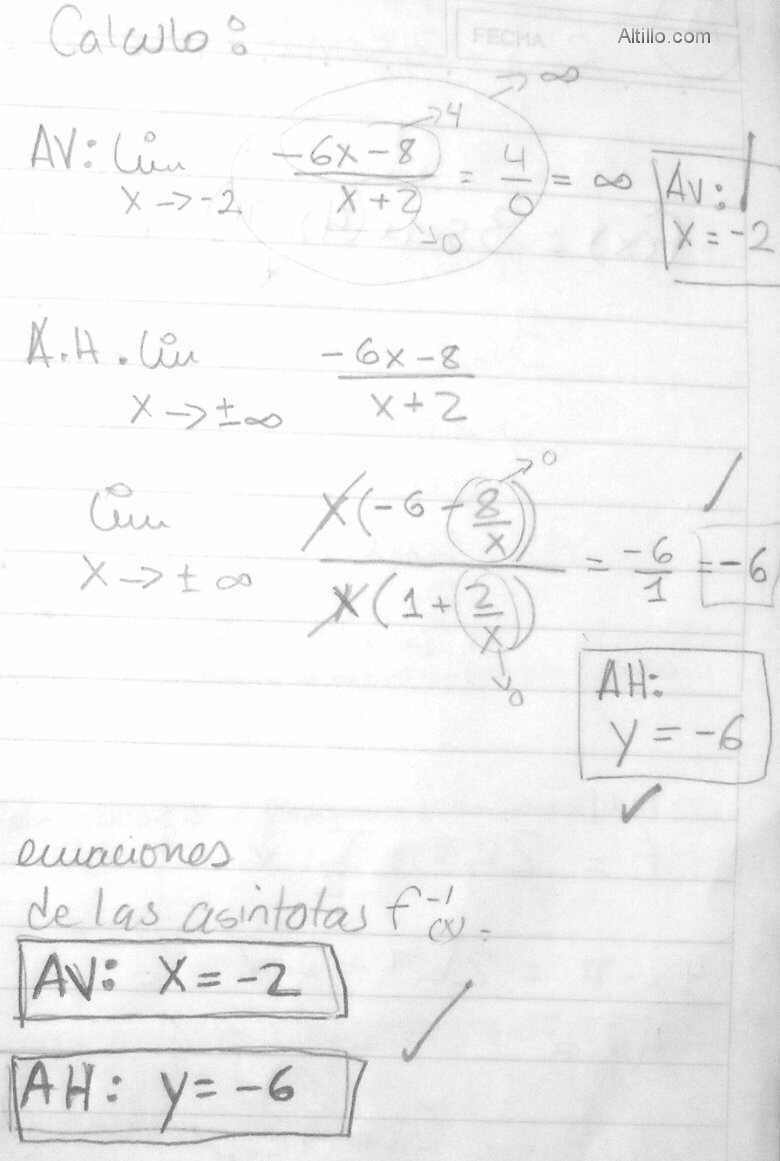 Calculo:
FECHA
Altillo.com
→ ∞
→ 4
AV: Lim -6x-8 / x+2 = 4/0 = ∞
x → -2
→ 0
AV:
x = -2
A.H. Lim -6x-8 / x+2
x → ±∞
→ 0
Lim x(-6 - 8/x) / x(1 + 2/x) = -6/1 = -6
x → ± ∞
→ 0
AH:
y = -6
ecuaciones
de las asintotas f⁻¹(x) =
AV: x = -2
AH: y = -6